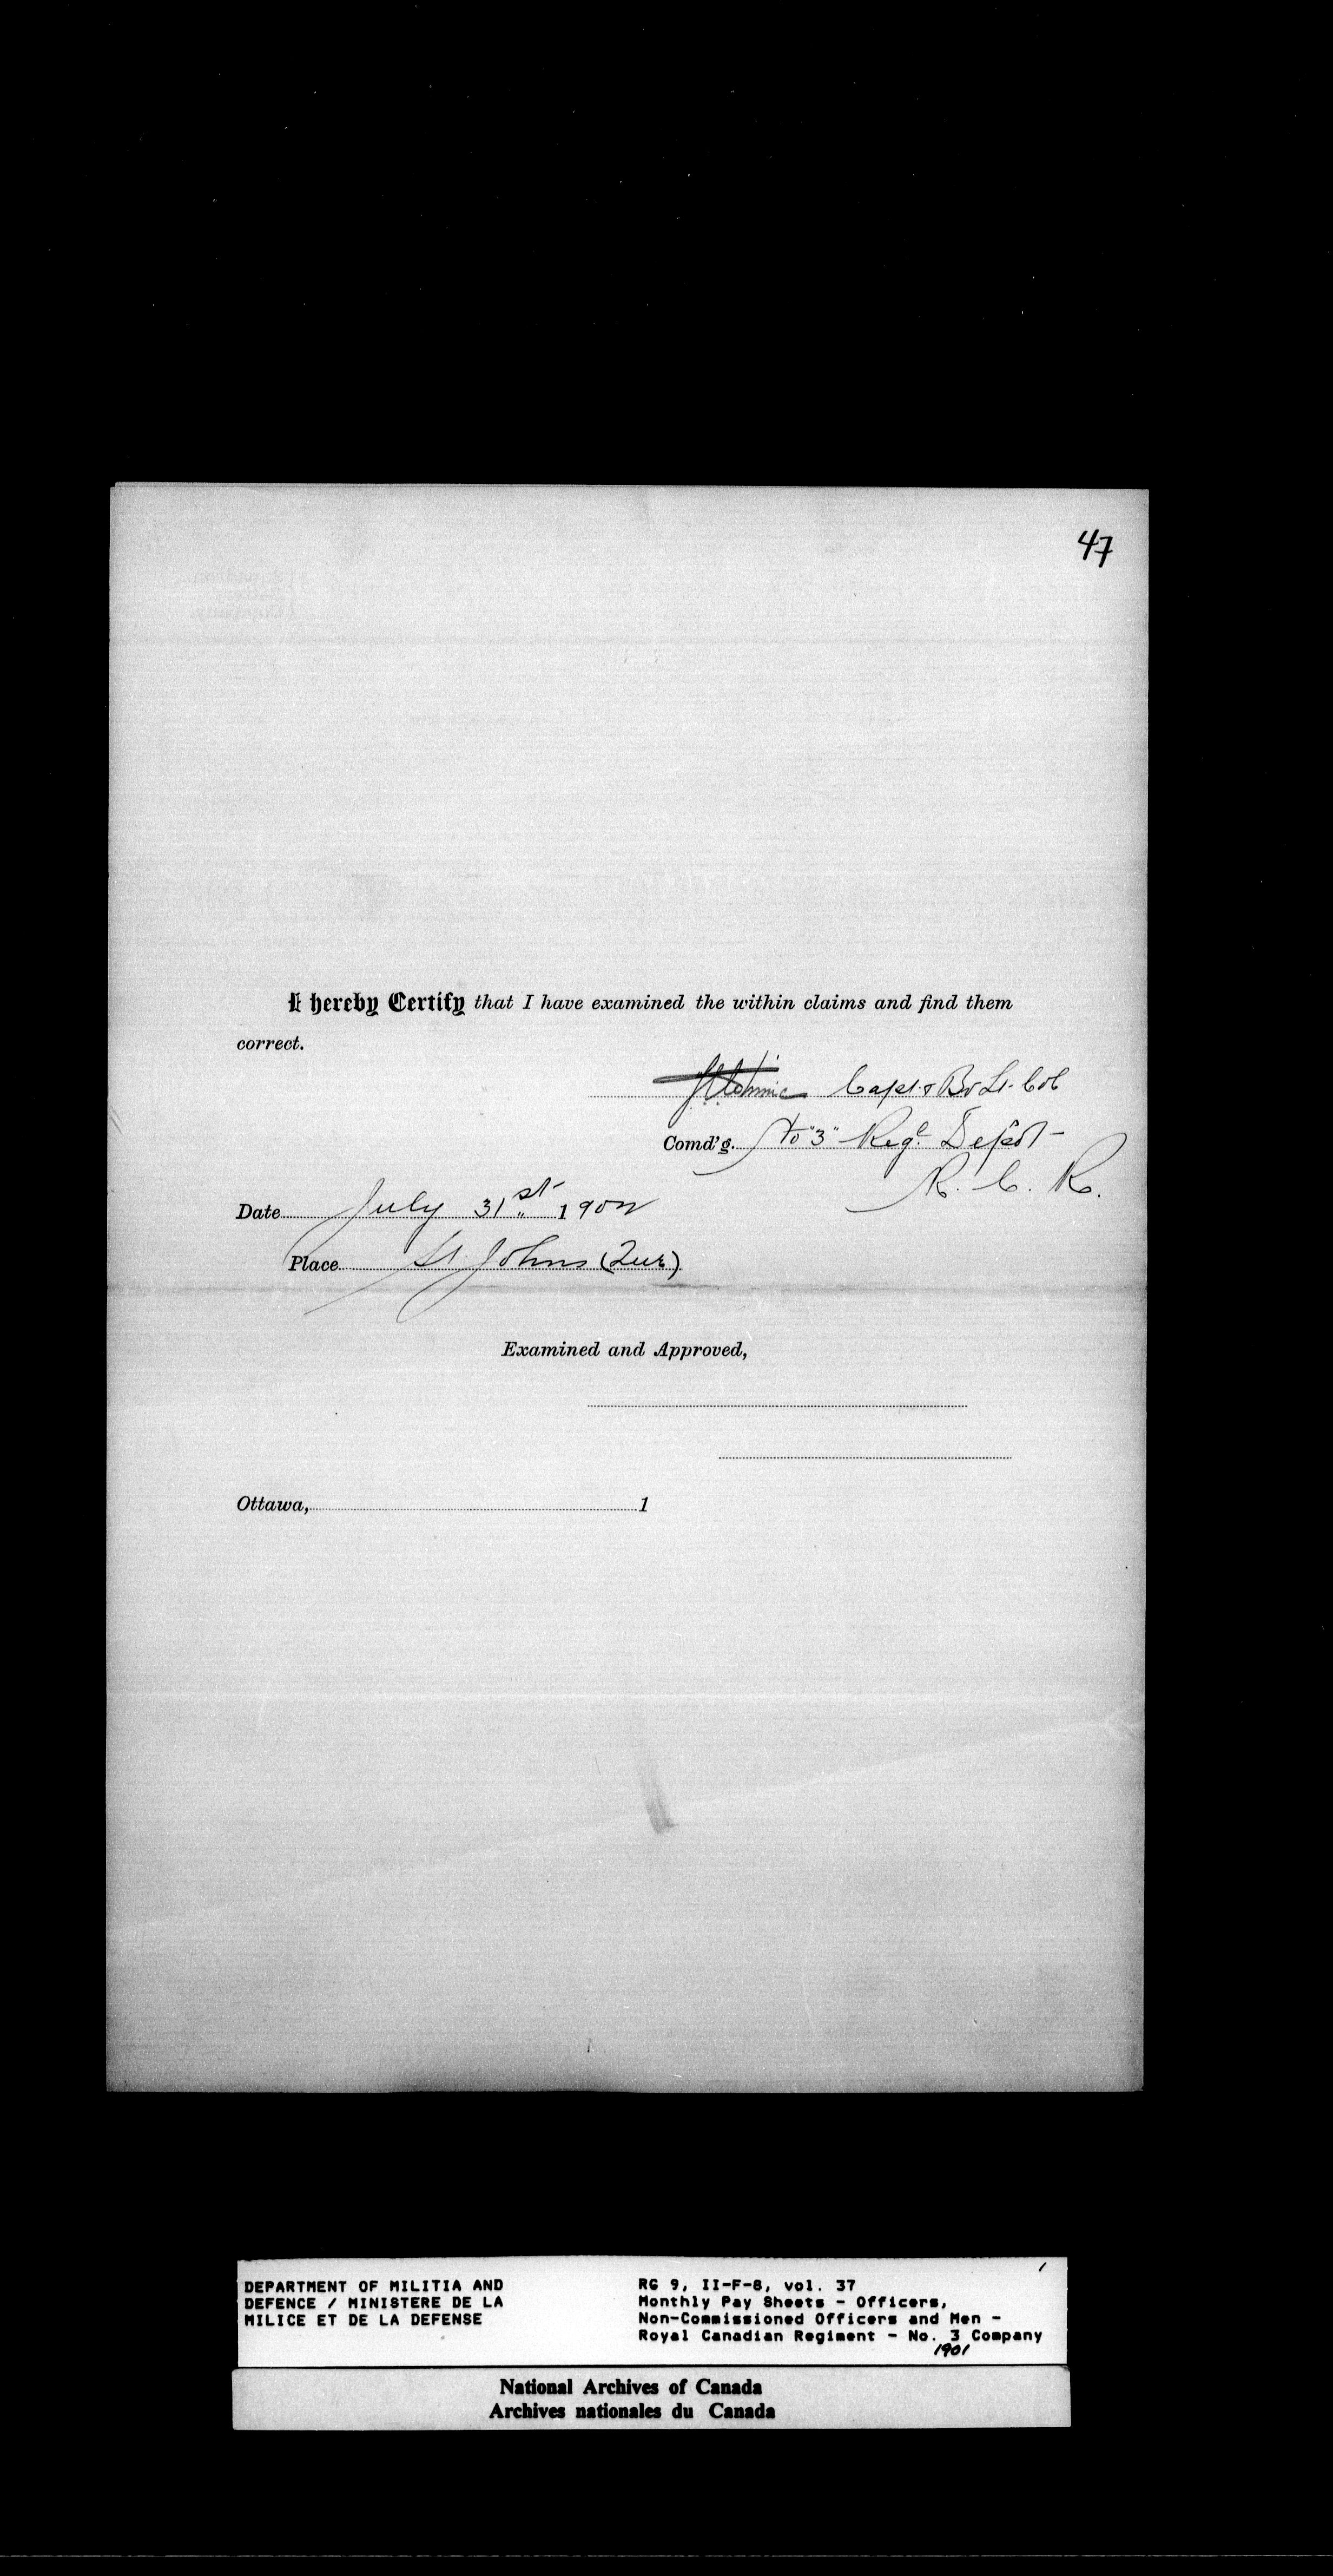 47
I hereby Certify that I have examined the within claims and find them
correct.
Capt. & Bv Lt. Col
Comd'g. No "3" Reg'l Depot
R. C. R.
Date July 31st 1902
Place St. Johns (Que)
Examined and Approved,
Ottawa, 1
DEPARTMENT OF MILITIA AND
DEFENCE / MINISTERE DE LA
MILICE ET DE LA DEFENSE
RG 9, II-F-8, vol. 37
Monthly Pay Sheets - Officers,
Non-Commissioned Officers and Men -
Royal Canadian Regiment - No. 3 Company
1901
National Archives of Canada
Archives nationales du Canada